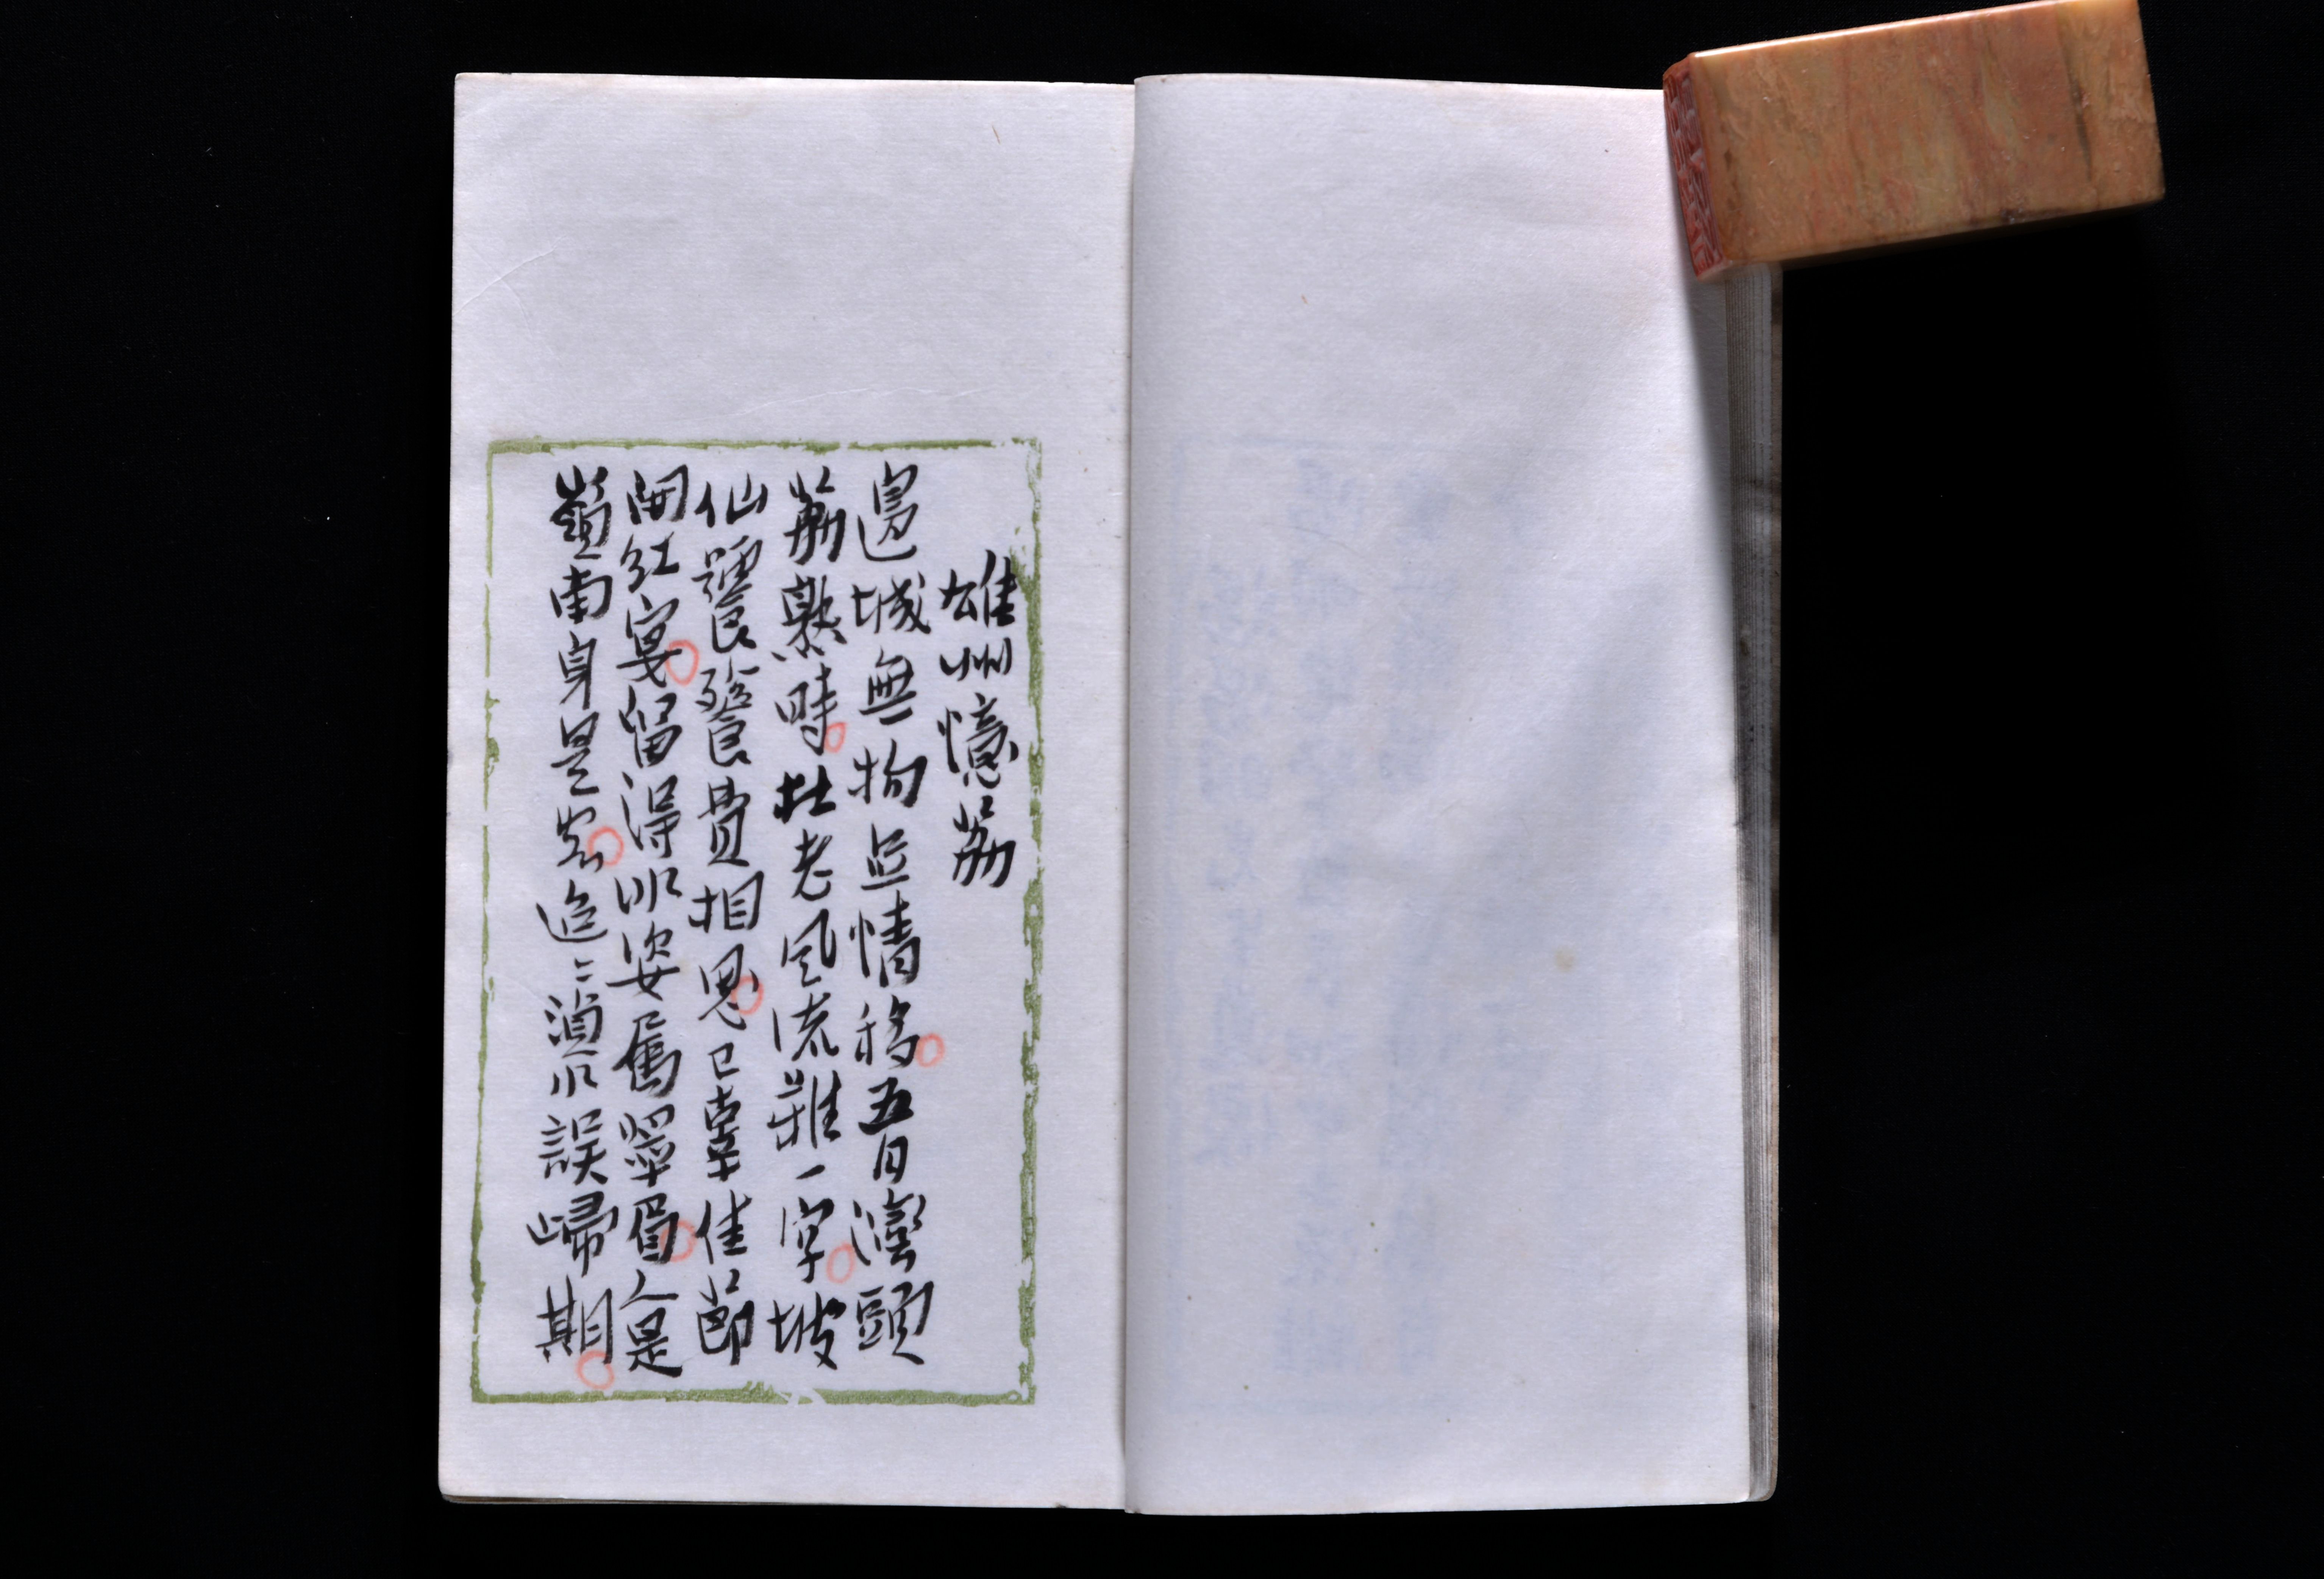 雄州憶荔
邊城無物与情移五月灣頭
荔熟時杜老風流難一字坡
仙饕餮費相思已辜佳節
開紅宴留得冰姿舊翠眉人是
嶺南身是客迢〻湞水誤歸
期